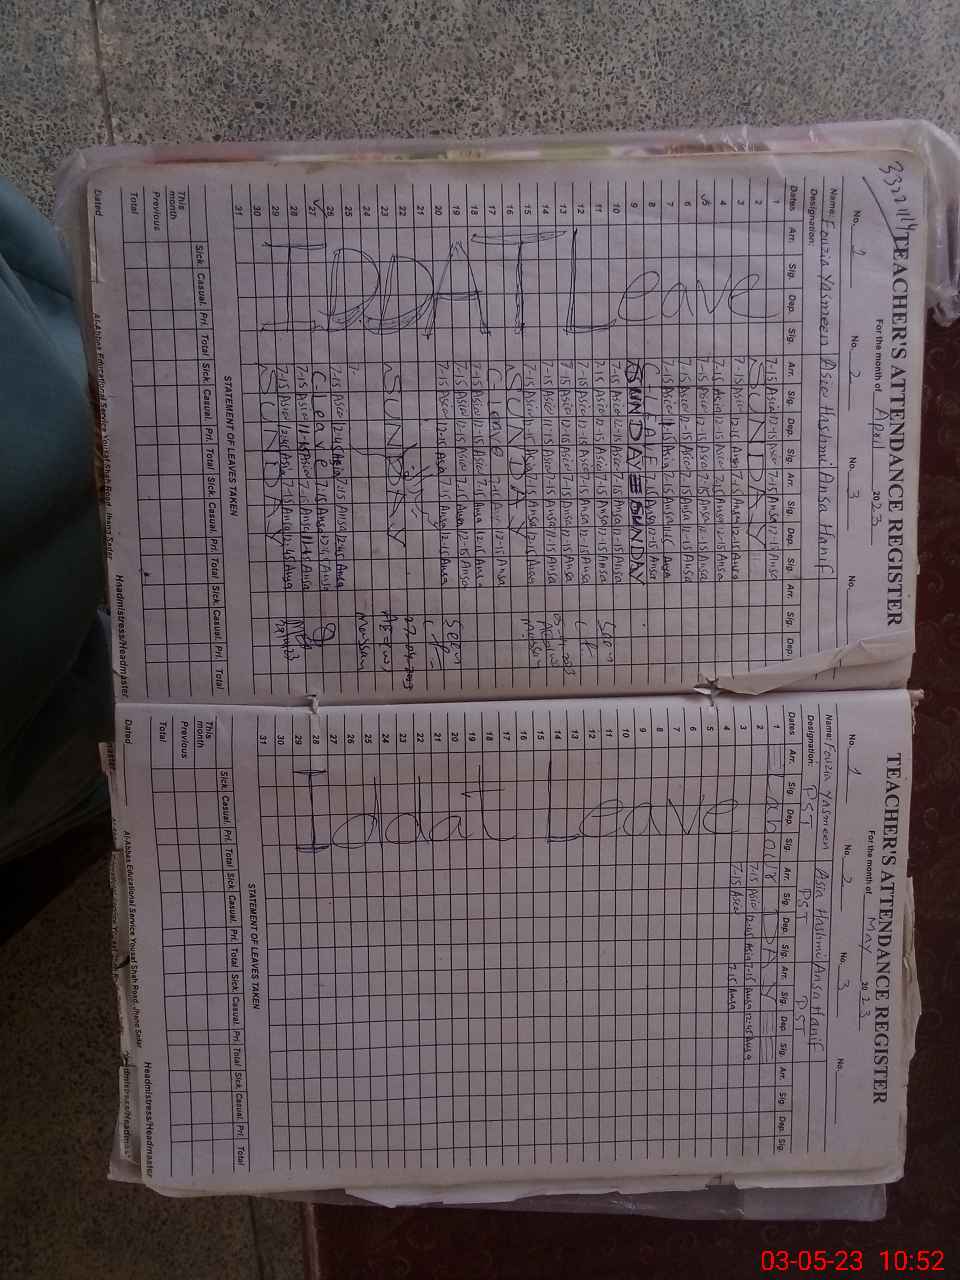 33221114
TEACHER'S ATTENDANCE REGISTER
For the month of April 2023
No. 1 No. 2 No. 3 No.
Name: Fouzia Yasmeen Asia Hashmi Ansa Hanif
Designation:
Dates Arr. Sig. Dep. Sig. Arr. Sig. Dep. Sig. Arr. Sig. Dep. Sig. Arr. Sig. Dep.
1 7-15 Asia 12-15 Asia 7-15 Ansa 12-15 Ansa
2 SUNDAY
3 7-15 Asia 12-15 Asia 7-15 Ansa 12-15 Ansa
4 7-15 Asia 12-15 Asia 7-15 Ansa 12-15 Ansa
5 7-15 Asia 12-15 Asia 7-15 Ansa 12-15 Ansa
6 7-15 Asia 12-15 Asia 7-15 Ansa 12-15 Ansa
7 7-15 Asia 12-15 Asia 7-15 Ansa 11-15 Ansa
8 C-LEAVE 7-15 Ansa 12-15 Ansa
9 SUNDAY SUNDAY
10 7-15 Asia 12-15 Asia 7-15 Ansa 12-15 Ansa
11 7-15 Asia 12-15 Asia 7-15 Ansa 12-15 Ansa
12 7-15 Asia 12-15 Asia 7-15 Ansa 12-15 Ansa
13 7-15 Asia 12-15 Asia 7-15 Ansa 12-15 Ansa
14 7-15 Asia 11-15 Asia 7-15 Ansa 11-15 Ansa
15 7-15 Asia 12-15 Asia 7-15 Ansa 12-15 Ansa
16 SUNDAY
17 C-Leave 7-15 Ansa 12-15 Ansa
18 7-15 Asia 12-15 Asia 7-15 Ansa 12-15 Ansa
19 7-15 Asia 12-15 Asia 7-15 Ansa 12-15 Ansa
20 7-15 Asia 12-15 Asia 7-15 Ansa 12-15 Ansa
21
22
23 SUNDAY
24
25 7-
26 7-15 Asia 12-45 Asia 7-15 Ansa 12-45 Ansa
27 C-Leave 7-15 Ansa 12-45 Ansa
28 7-15 Asia 11-45 Asia 7-15 Ansa 11-45 Ansa
29 7-15 Asia 12-45 Asia 7-15 Ansa 12-45 Ansa
30 SUNDAY
31
IDDAT Leave
Seen
Seen
STATEMENT OF LEAVES TAKEN
Sick. Casual. Pri. Total Sick. Casual. Pri. Total Sick. Casual. Pri. Total Sick. Casual. Pri. Total
This month
Previous
Total
Dated Al-Abbas Educational Service Yousaf Shah Road, Jhang Sadar Headmistress/Headmaster
TEACHER'S ATTENDANCE REGISTER
For the month of May 2023
No. 1 No. 2 No. 3 No.
Name: Fouzia Yasmeen Asia Hashmi Ansa Hanif
Designation: PST PST PST
Dates Arr. Sig. Dep. Sig. Arr. Sig. Dep. Sig. Arr. Sig. Dep. Sig. Arr. Sig. Dep. Sig.
1 Labour DAY
2 7-15 Asia 12-45 Asia 7-15 Ansa 12-45 Ansa
3 7-15 Asia 7-15 Ansa
4
5
6
7
8
9
10
11
12
13
14
15
16
17
18
19
20
21
22
23
24
25
26
27
28
29
30
31
Iddat Leave
STATEMENT OF LEAVES TAKEN
Sick. Casual. Pri. Total Sick. Casual. Pri. Total Sick. Casual. Pri. Total Sick. Casual. Pri. Total
This month
Previous
Total
Dated Al-Abbas Educational Service Yousaf Shah Road, Jhang Sadar Headmistress/Headmaster
03-05-23 10:52